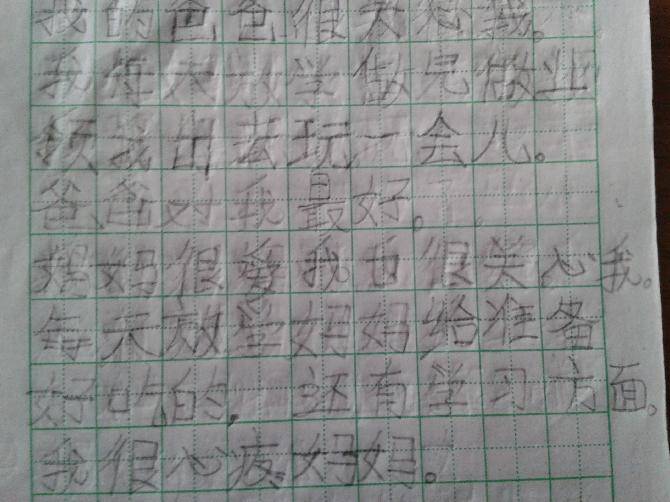 我的爸爸很关心我。
我每天放学做完做业
领我出去玩一会儿。
爸爸对我最好。
妈妈很爱我也很关心我。
每天放学妈妈给准备
好吃的，还有学习方面。
我很心疼妈妈。